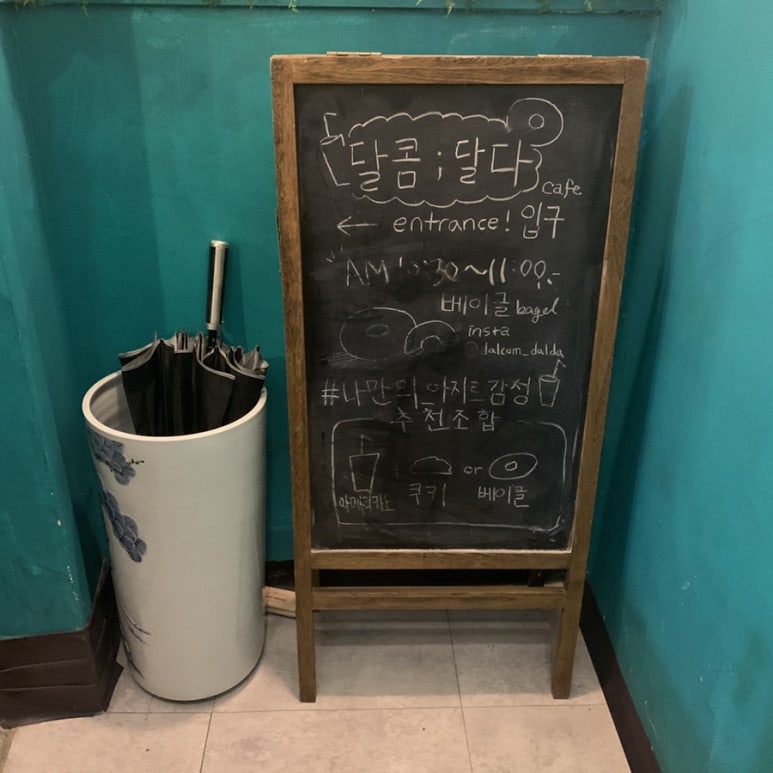 달콤;달다
cafe
← entrance! 입구
AM 10:30~11:00
베이글 bagel
insta
@dalcom_dalda
#나만의_아지트감성
추천조합
아메리카노 쿠키 or 베이글